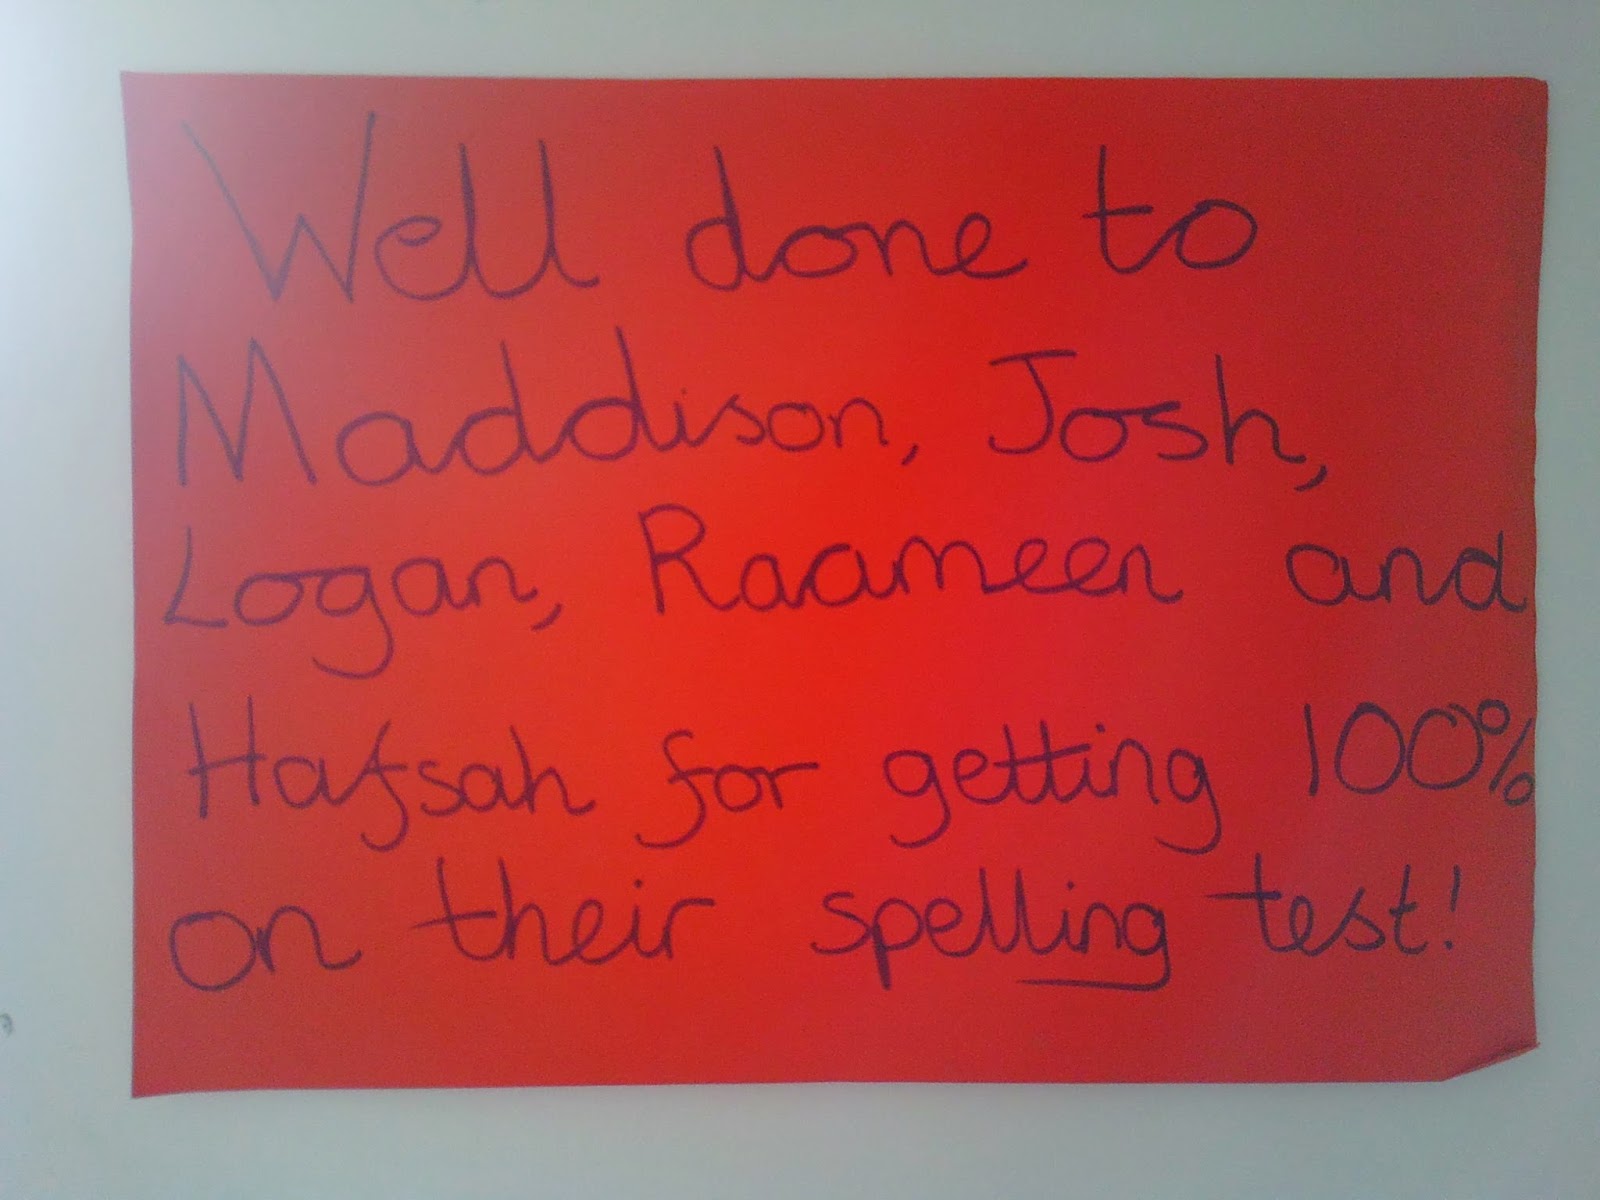 Well done to
Maddison, Josh,
Logan, Raameen and
Hafsah for getting 100%
on their spelling test!